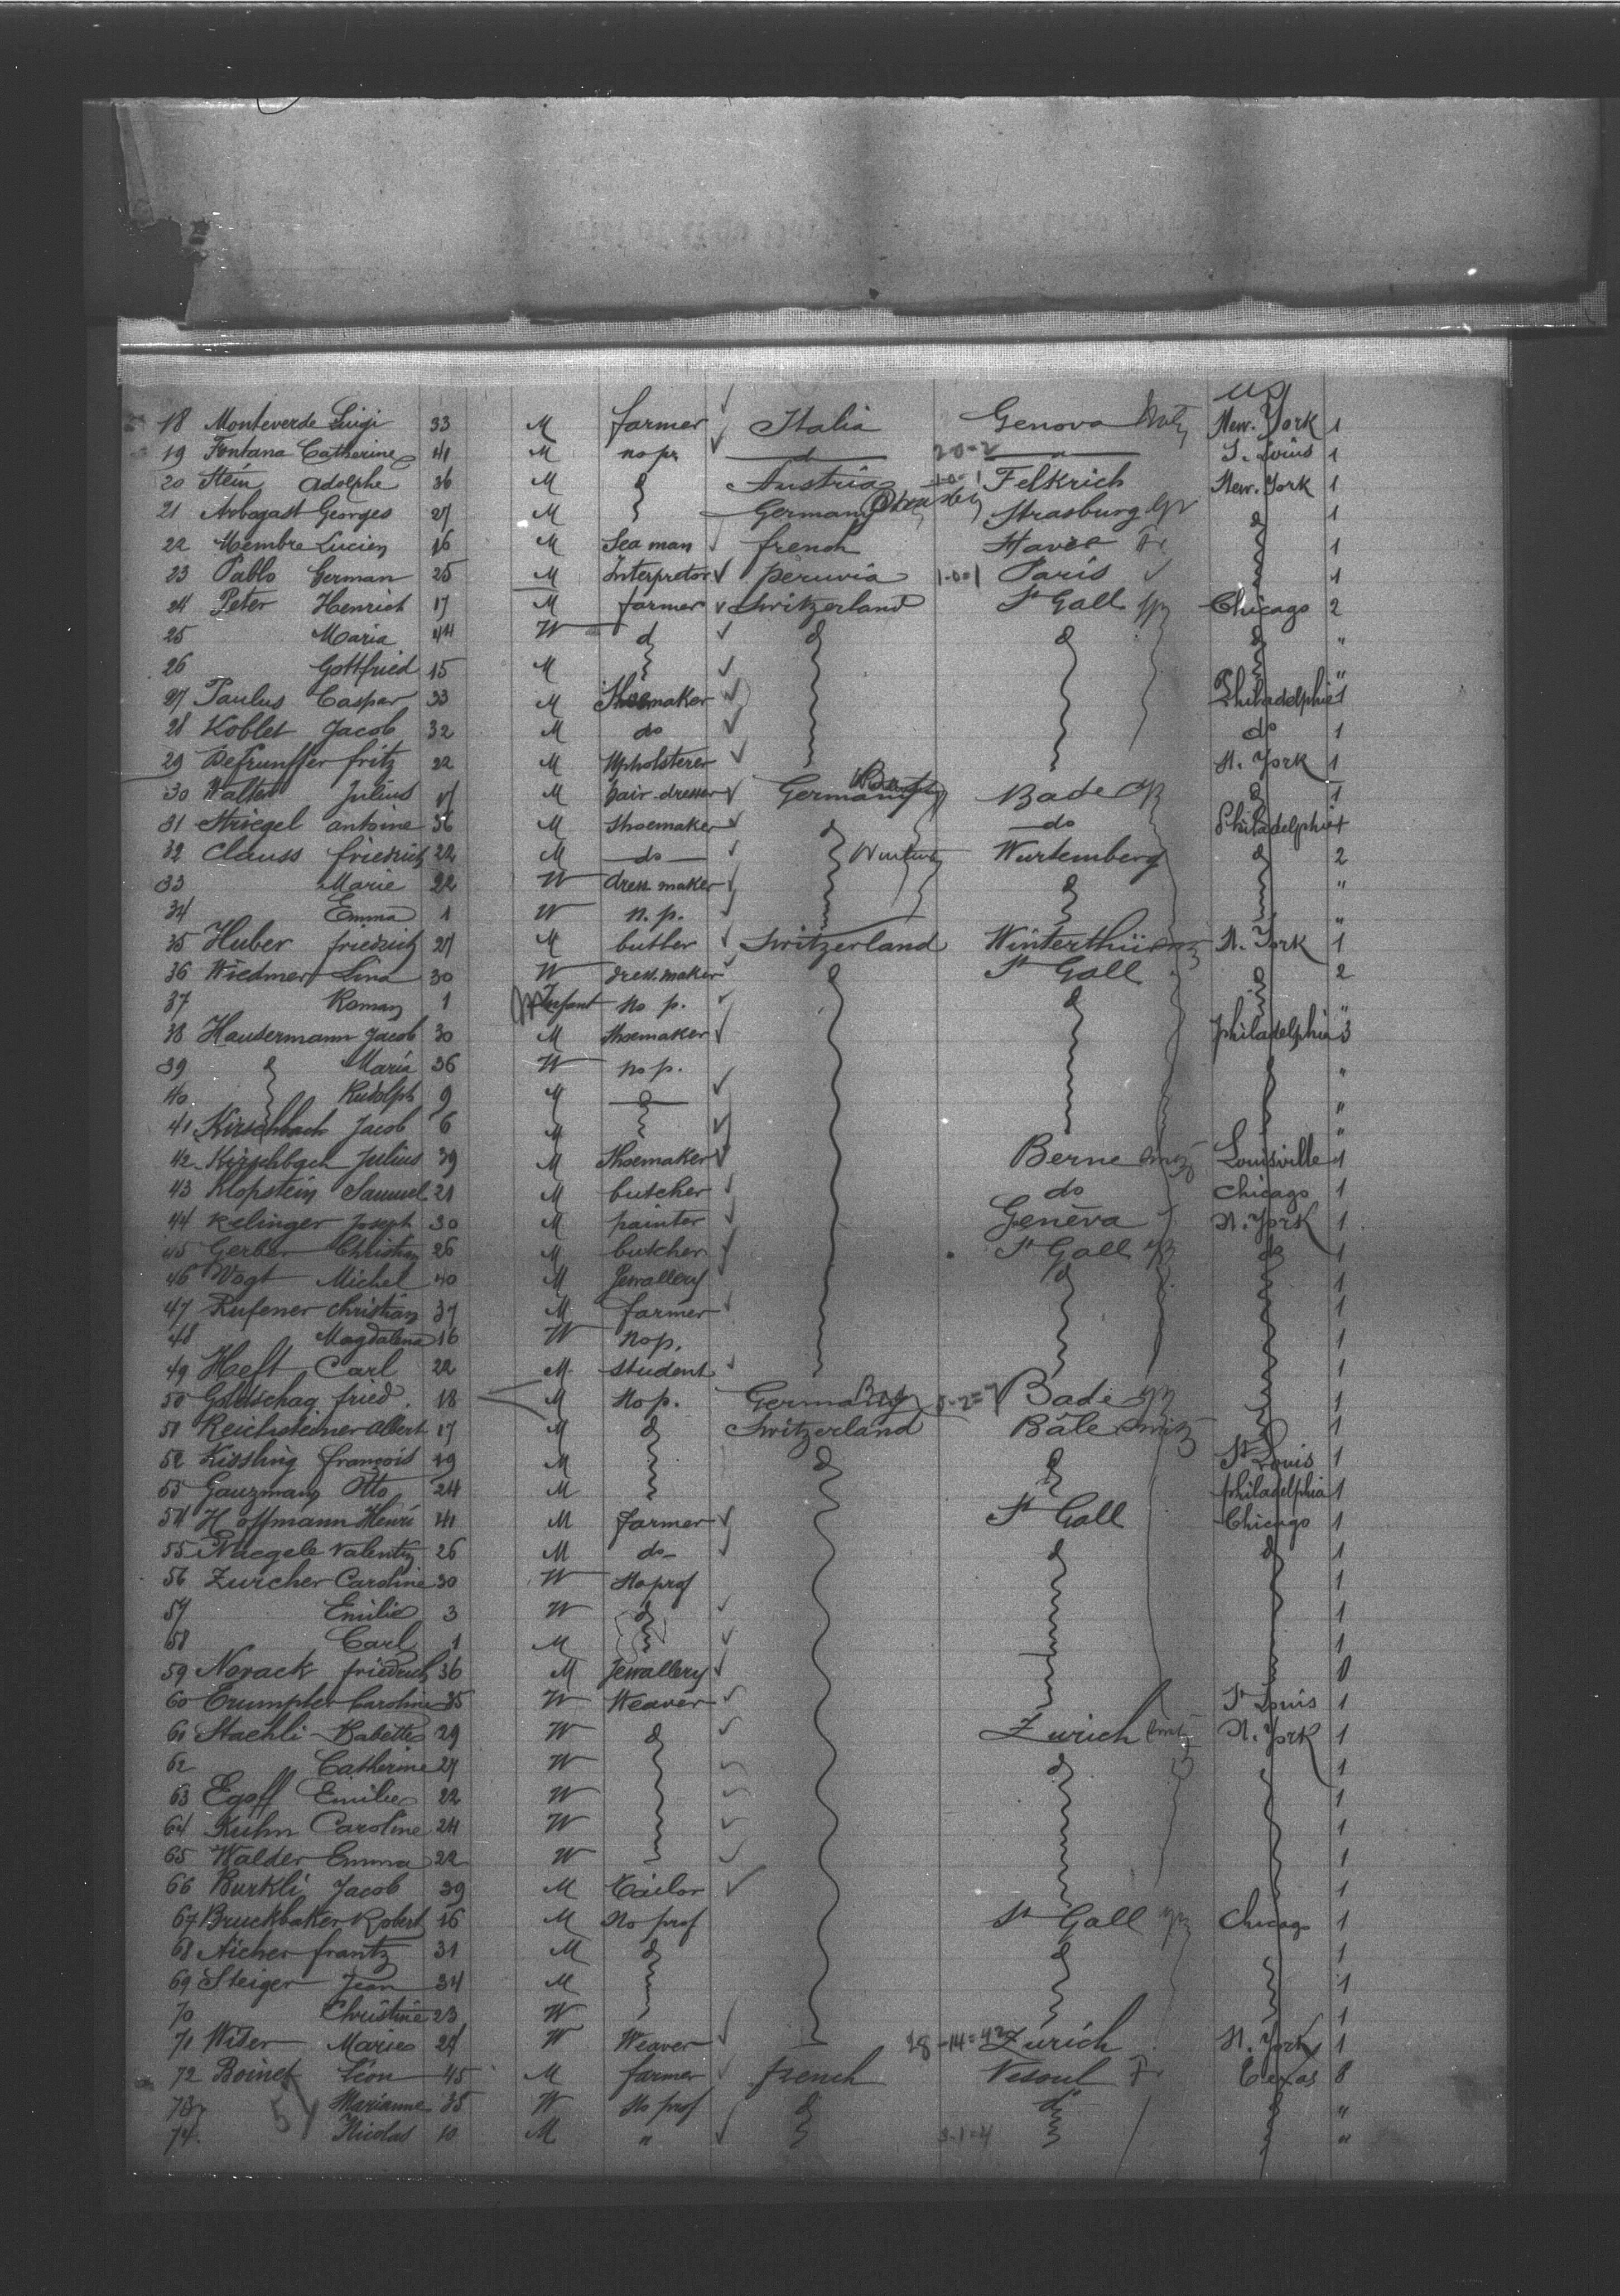 U S
18 Monteverde Luigi 33 M farmer Italia Genova Italy New-York 1
19 Fontana Catherine 41 M no pr. d 20-2 " S. Louis 1
20 Stein Adolphe 36 M d Austria 10-1 Felkrich New-York 1
21 Arbogast Georges 27 M Germany Strasburg d 1
22 Membre Lucien 16 M Sea man french Havre Fr 1
23 Pablo German 25 M Interpretor peruvia 1-0-1 Paris 1
24 Peter Henrich 17 M farmer Switzerland St Gall Chicago 2
25 Maria 44 W d d d d "
26 Gottfried 15 M "
27 Paulus Casper 33 M Shoemaker Philadelphie 1
28 Koblet Jacob 32 M do do 1
29 fritz 22 M Upholsterer N. York 1
30 Walter Julius M hair-dresser Germany Bade d 1
31 Striegel antoine 36 M Shoemaker d do Philadelphie 1
32 Clauss friedrich 22 M do Wurtemberg d 2
33 Marie 22 W dress maker d "
34 Emma 1 W n. p. "
35 Huber friedrich 27 M butler Switzerland Winterthür N. York 1
36 Wiedmer Lina 30 W dress.maker d St Gall d 2
37 Roman 1 Infant No p. d "
38 Hausermann Jacob 30 M Shoemaker philadelphia 3
39 d Maria 36 W no p. d "
40 Rudolph 9 M d "
41 Kirschbach Jacob 6 M "
42 Kirschbach Julius 39 M Shoemaker Berne Louisville 1
43 Klopstein Samuel 21 M butcher do Chicago 1
44 Relinger Joseph 30 M painter Genèva N. York 1
45 Gerber Christian 26 M butcher St Gall do 1
46 Vogt Michel 40 M Jewallery d 1
47 Rufener christian 37 M farmer 1
48 Magdalena 16 W No p. 1
49 Heft Carl 22 M student 1
50 Goldschag fried. 18 M No p. Germany Bade 1
51 Reichsteiner Albert 17 M d Switzerland Bâle 1
52 Kissling françois 19 M d d St Louis 1
53 Gauzmann Otto 24 M philadelphia 1
54 Hoffmann Henri 41 M farmer St Gall Chicago 1
55 Naegele Valentin 26 M do d d 1
56 Zurcher Caroline 30 W No prof 1
57 Emilie 3 W d 1
58 Carl 1 M 1
59 Novack friedrich 36 M Jewallery 0
60 Crumpler Caroline 35 W Weaver St Louis 1
61 Staehli Babette 29 W d Zurich N. York 1
62 Catherine 27 W d 1
63 Egoff Emilie 22 W 1
64 Kuhn Caroline 24 W 1
65 Walder Emma 22 W 1
66 Burkli Jacob 39 M Tailor 1
67 Bruckbaker Robert 16 M No prof St Gall Chicago 1
68 Aicher frantz 31 M d d 1
69 Steiger Jean 34 M 1
70 Christine 23 W 1
71 Wiser Marie 24 W Weaver 28-14=42 Zurich N. York 1
72 Boinet Léon 45 M farmer french Vesoul Fr Texas 8
73 Marianne 35 W No prof d do "
74 Nicolas 10 M " 3-1-4 "